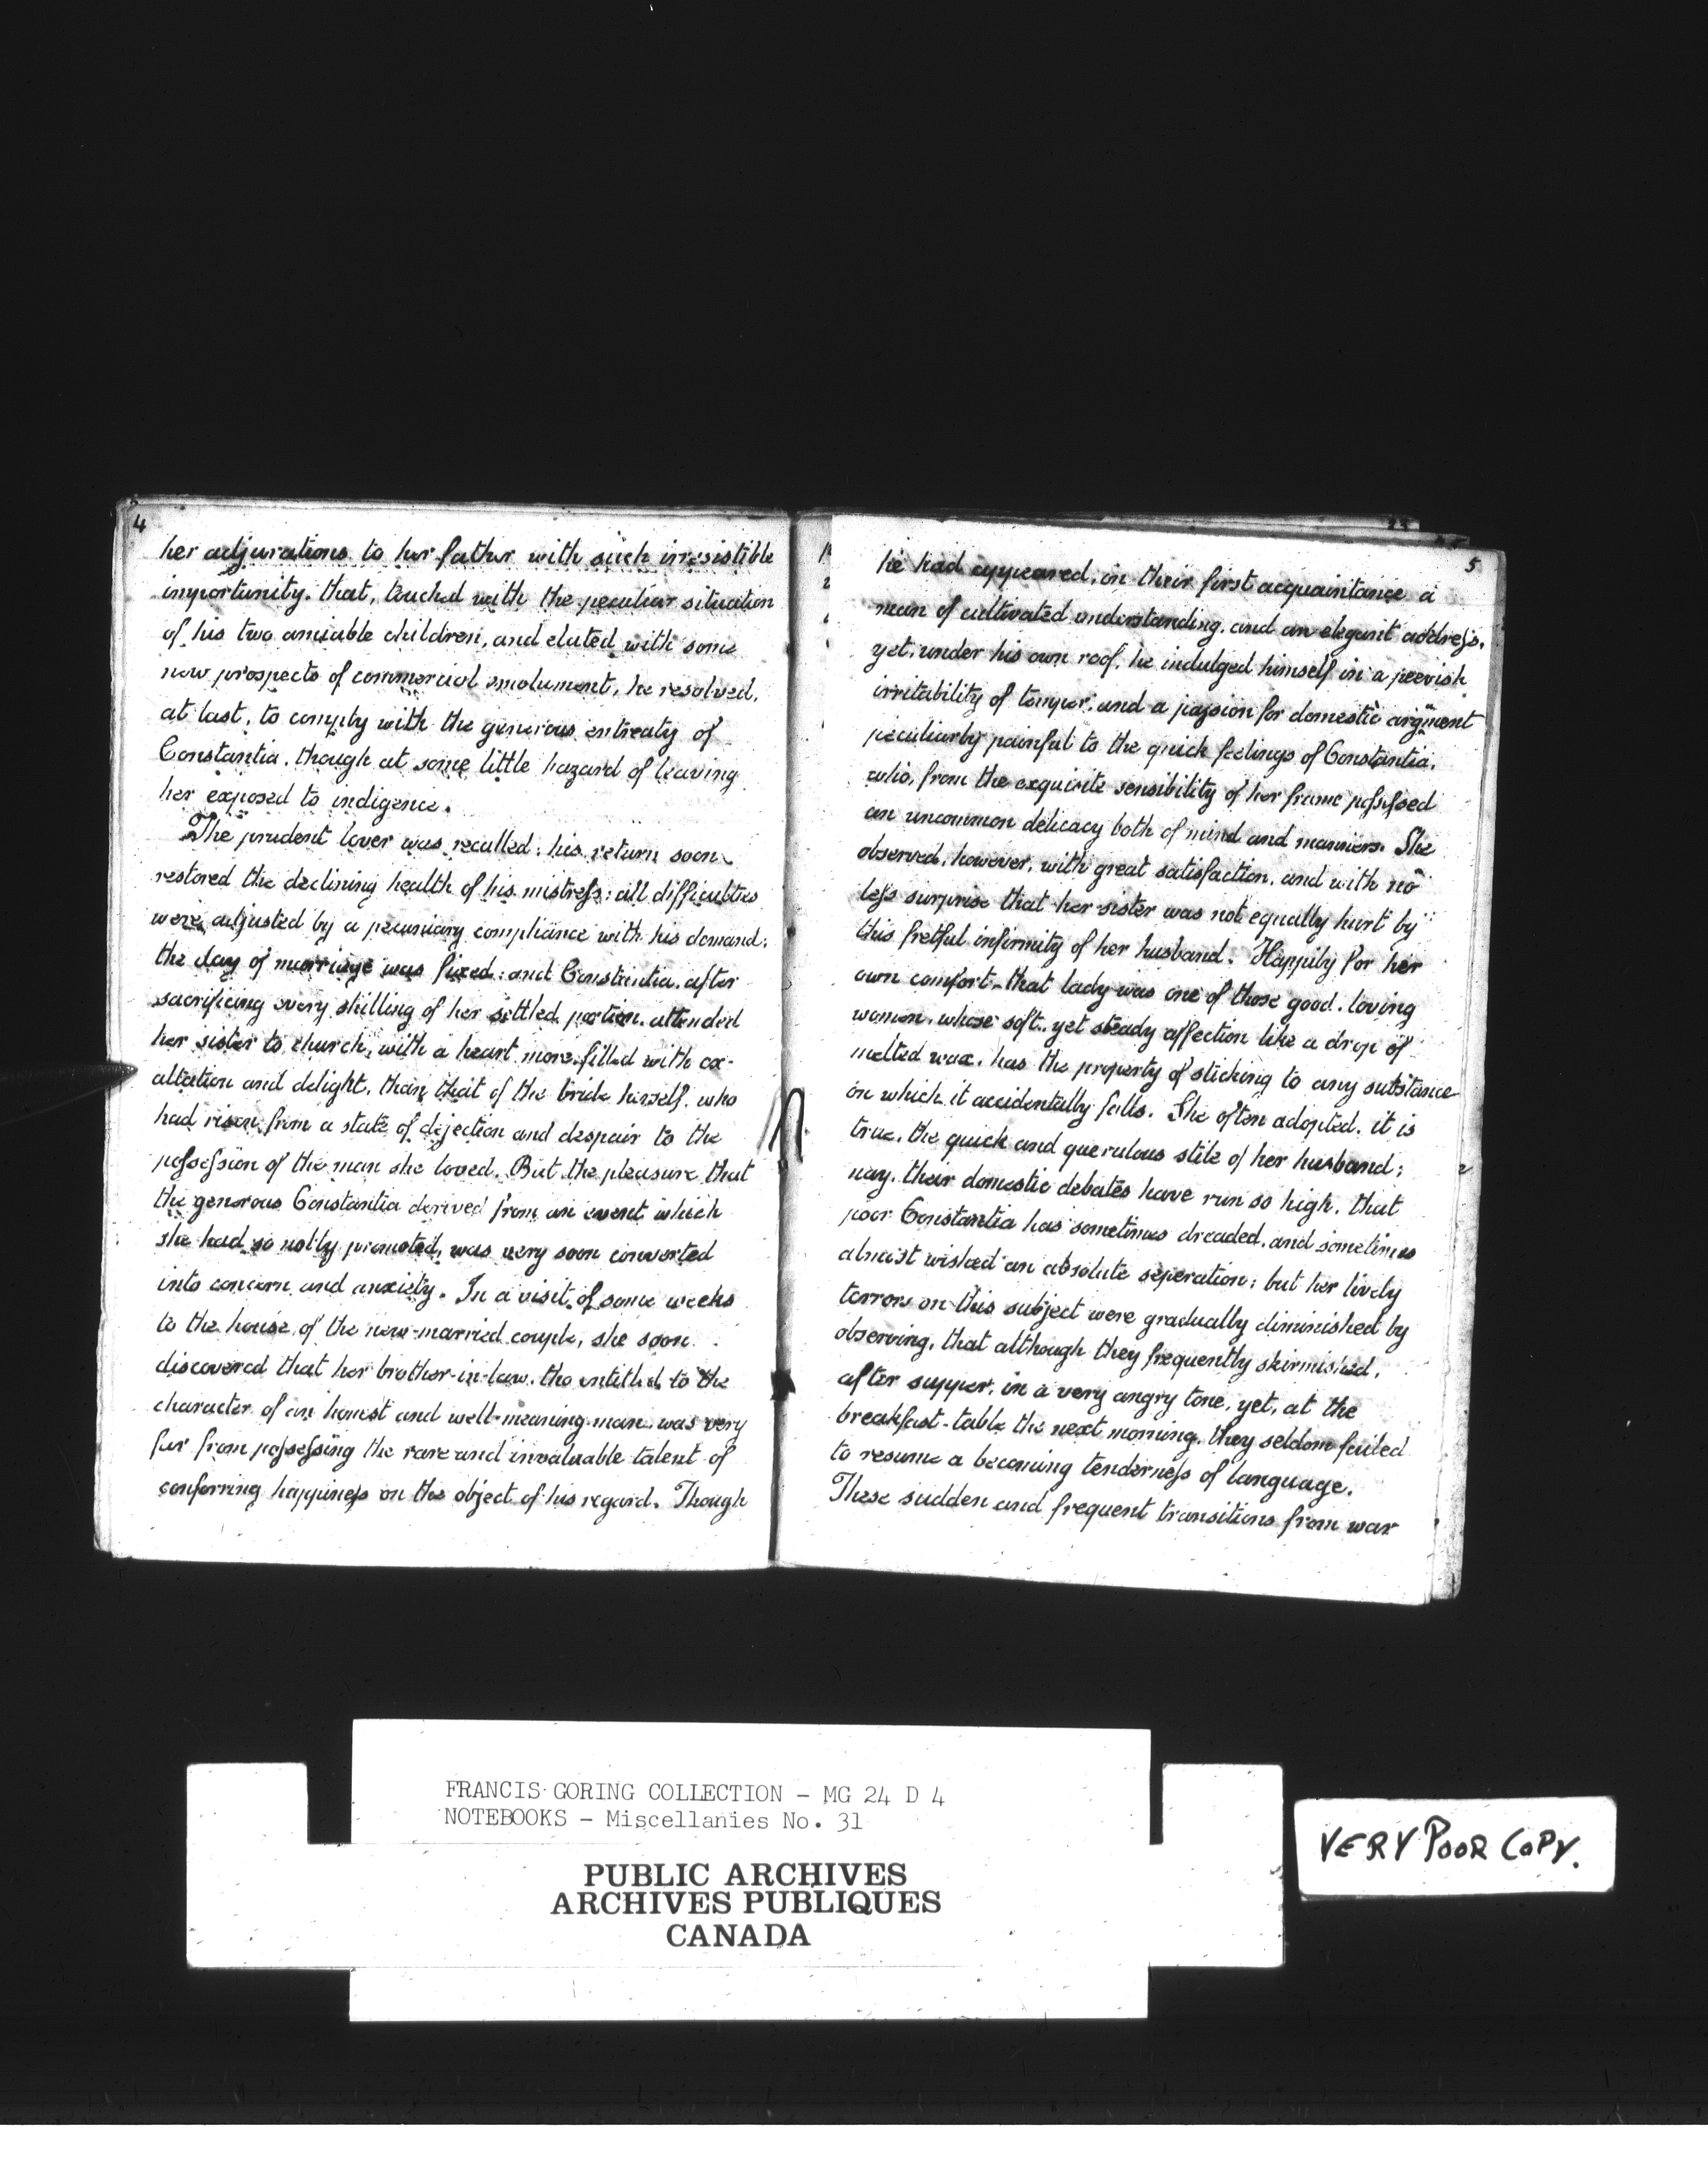 4
her adjurations to her father with such irresistible
importunity, that, touched with the peculiar situation
of his two amiable children, and elated with some
new prospects of commercial emolument, he resolved,
at last, to comply with the generous entreaty of
Constantia, though at some little hazard of leaving
her exposed to indigence.
The prudent lover was recalled: his return soon
restored the declining health of his mistress: all difficulties
were adjusted by a pecuniary compliance with his demand:
the day of marriage was fixed: and Constantia, after
sacrificing every shilling of her settled portion, attended
her sister to church, with a heart more filled with ex-
altation and delight, than that of the bride herself, who
had risen from a state of dejection and despair to the
possession of the man she loved. But the pleasure that
the generous Constantia derived from an event which
she had so nobly promoted, was very soon converted
into concern and anxiety. In a visit of some weeks
to the house of the new-married couple, she soon
discovered that her brother-in-law, tho entitled to the
character of an honest and well-meaning man, was very
far from possessing the rare and invaluable talent of
conferring happiness on the object of his regard. Though
5
he had appeared, in their first acquaintance a
man of cultivated understanding, and an elegant address,
yet, under his own roof, he indulged himself in a peevish
irritability of temper, and a passion for domestic argument
peculiarly painful to the quick feelings of Constantia,
who, from the exquisite sensibility of her frame possessed
an uncommon delicacy both of mind and manners. She
observed, however, with great satisfaction, and with no
less surprise that her sister was not equally hurt by
this fretful infirmity of her husband. Happily for her
own comfort, that lady was one of those good, loving
women, whose soft, yet steady affection like a drop of
melted wax, has the property of sticking to any substance
on which it accidentally falls. She often adopted, it is
true, the quick and querulous stile of her husband;
nay, their domestic debates have run so high, that
poor Constantia has sometimes dreaded, and sometimes
almost wished an absolute seperation; but her lively
terrors on this subject were gradually diminished by
observing, that although they frequently skirmished,
after supper, in a very angry tone, yet, at the
breakfast-table the next morning, they seldom failed
to resume a becoming tenderness of language.
These sudden and frequent transitions from war
FRANCIS GORING COLLECTION - MG 24 D 4
NOTEBOOKS - Miscellanies No. 31
PUBLIC ARCHIVES
ARCHIVES PUBLIQUES
CANADA
VERY POOR COPY.